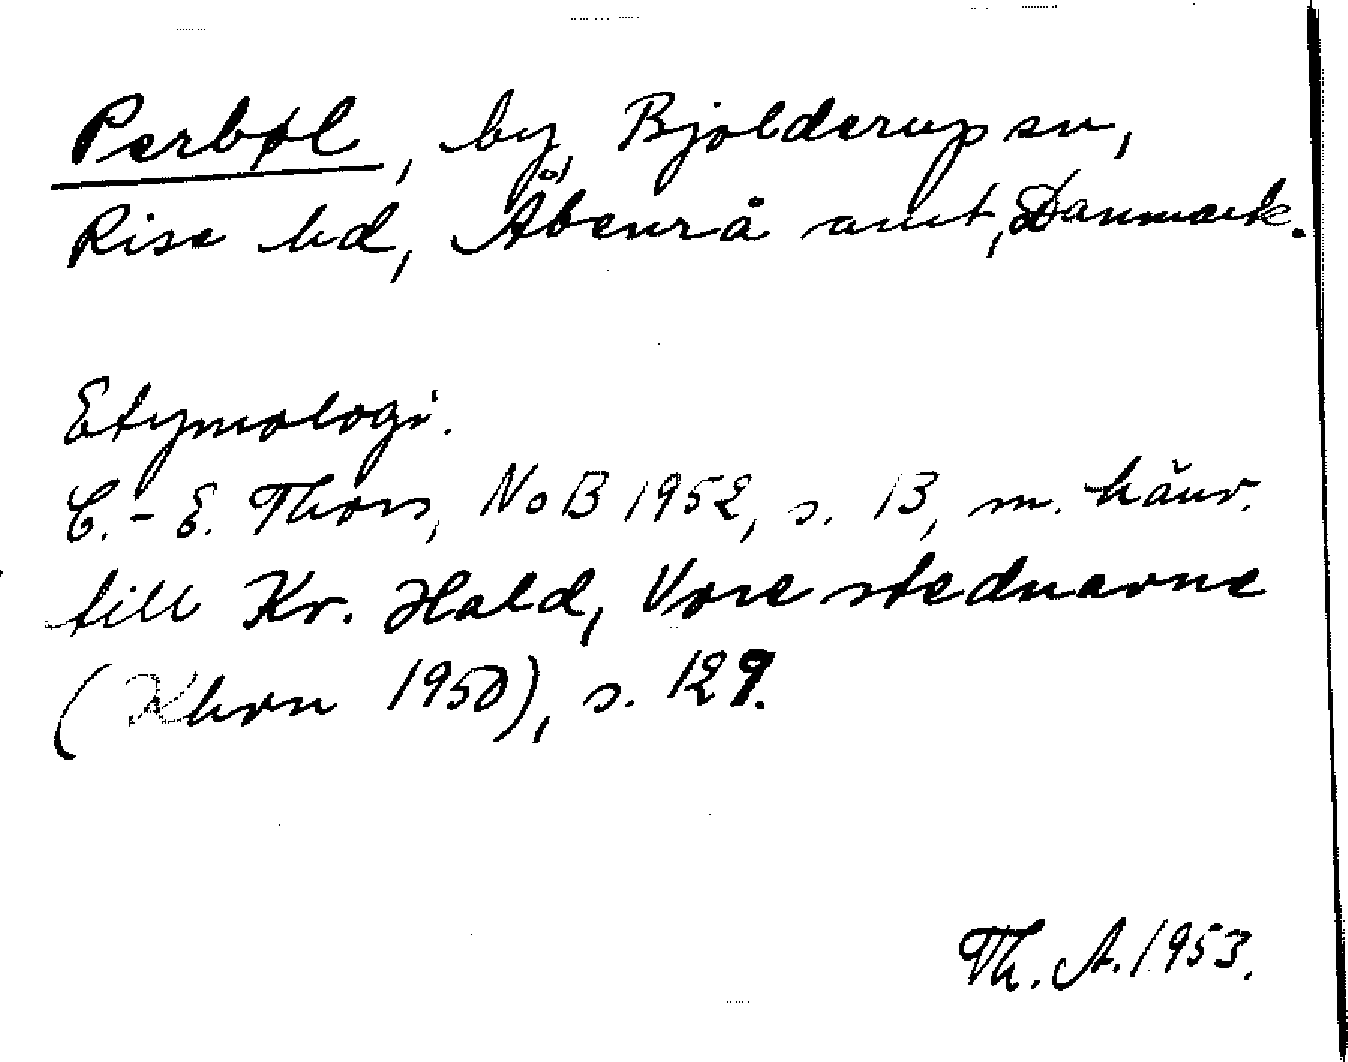 Perbøl, by, Bjolderup sn,
Rise hd, Åbenrå amt, Danmark.
Etymologi.
C.-E. Thors, NoB 1952, s. 13, m. hänv.
till Kr. Hald, Vore stednavne
(Khvn 1950), s. 129.
Th. A. 1953.